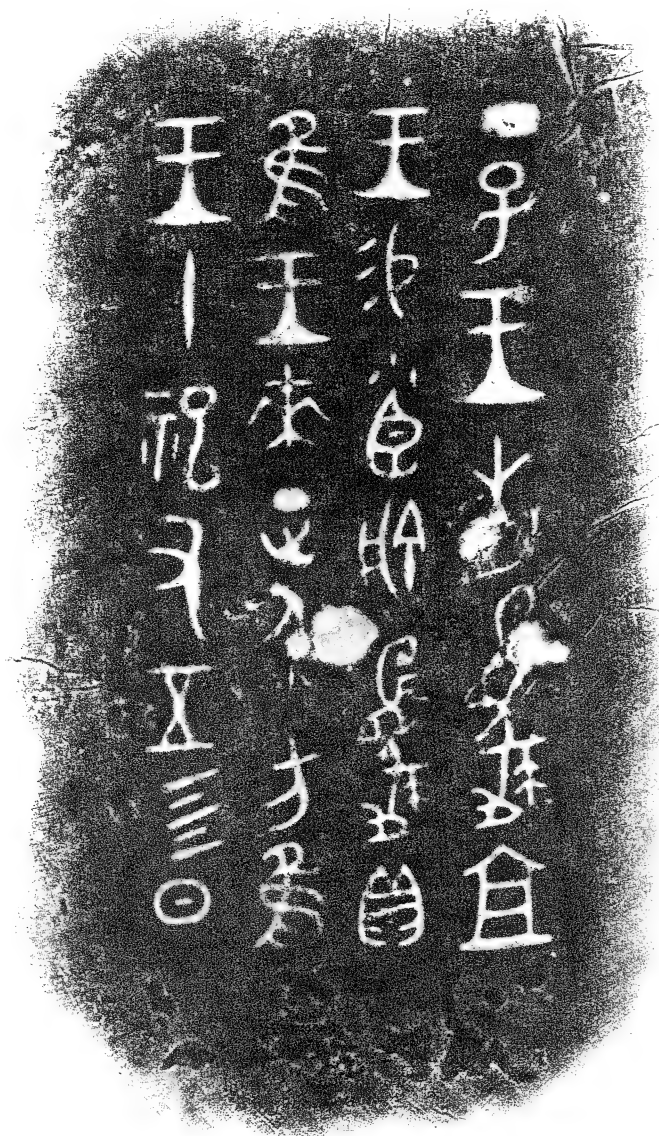 丁巳王省夔且
王易小臣艅夔貝
隹王來正人方隹
王十祀又五肜日